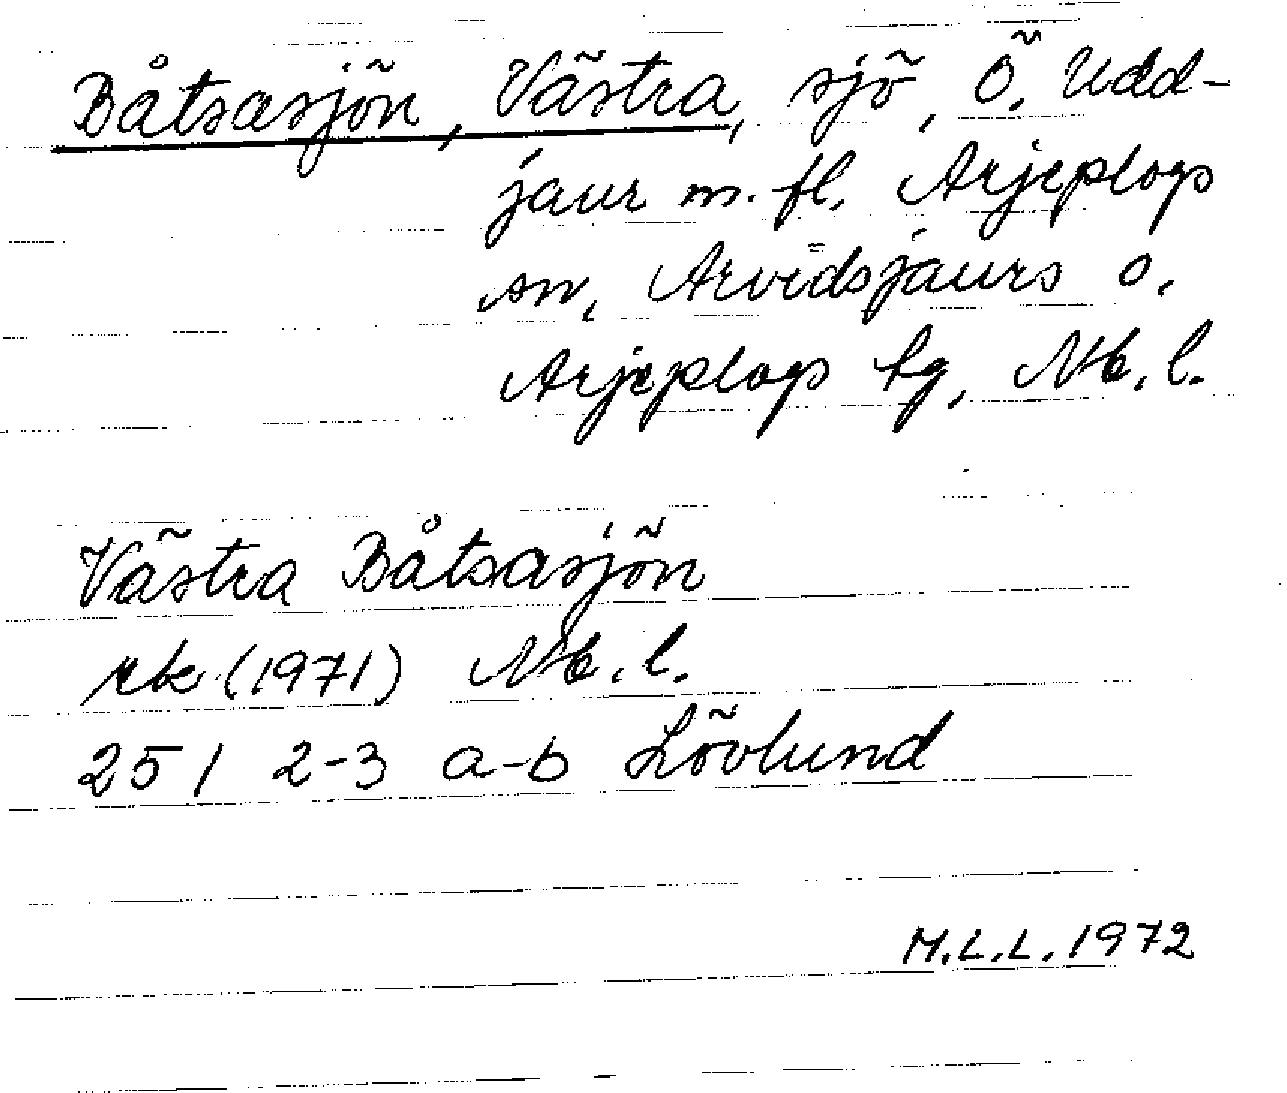 Båtsasjön, Västra, sjö, Ö. Udd-
jaur m. fl. Arjeplogs
sn, Arvidsjaurs o.
Arjeplogs tg, Nb. l.
Västra Båtsasjön
rbk (1971) Nb. l.
25 I 2-3 a-b Lövlund
M.L.L. 1972